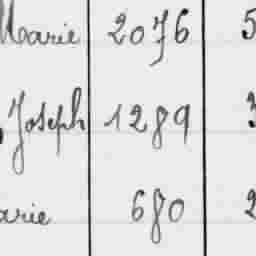 Marie 2076 5
Joseph 1289 3
arie 680 2